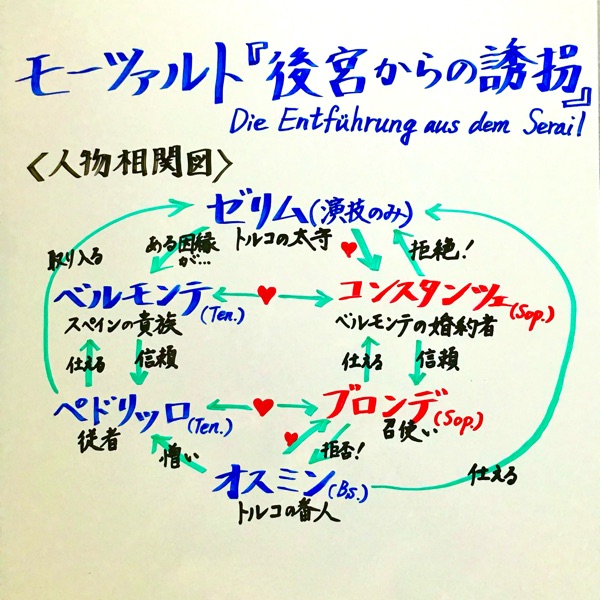 モーツァルト『後宮からの誘拐』
Die Entführung aus dem Serail
〈人物相関図〉
ゼリム(演技のみ)
トルコの太守
取り入る
ある因縁
が…
拒絶!
ベルモンテ(Ten.)
スペインの貴族
コンスタンツェ(Sop.)
ベルモンテの婚約者
仕える
信頼
仕える
信頼
ペドリッロ(Ten.)
従者
ブロンデ(Sop.)
召使い
憎い
拒否!
オスミン(Bs.)
トルコの番人
仕える